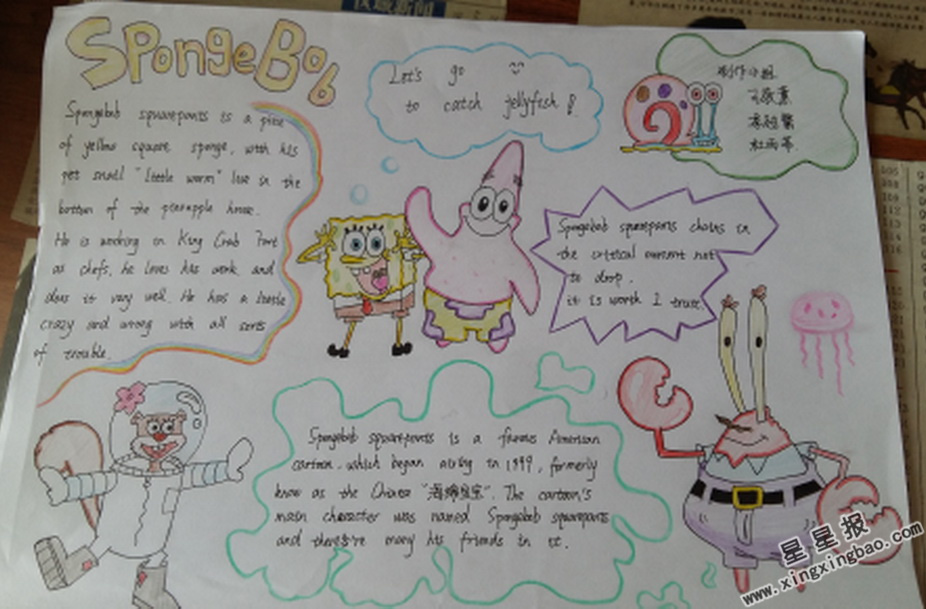 SPongeBob
Spongebob squarepants is a piece
of yellow square sponge, with his
pet snail "little worm" live in the
bottom of the pineapple house.
He is working in King Crab Fort
as chefs, he loves his work and
does it very well. He has a little
crazy and wrong with all sorts
of trouble.
Let's go
to catch jellyfish!
制作小组
Spongebob squarepants chains in
the critical moment not
to drop.
it is worth I trust.
Spongebob squarepants is a famous American
cartoon, which began airing in 1999, formerly
know as the Chinese "海绵宝宝". The cartoon's
main character was named Spongebob squarepants
and there're many his friends in it.
星星报
www.xingxingbao.com